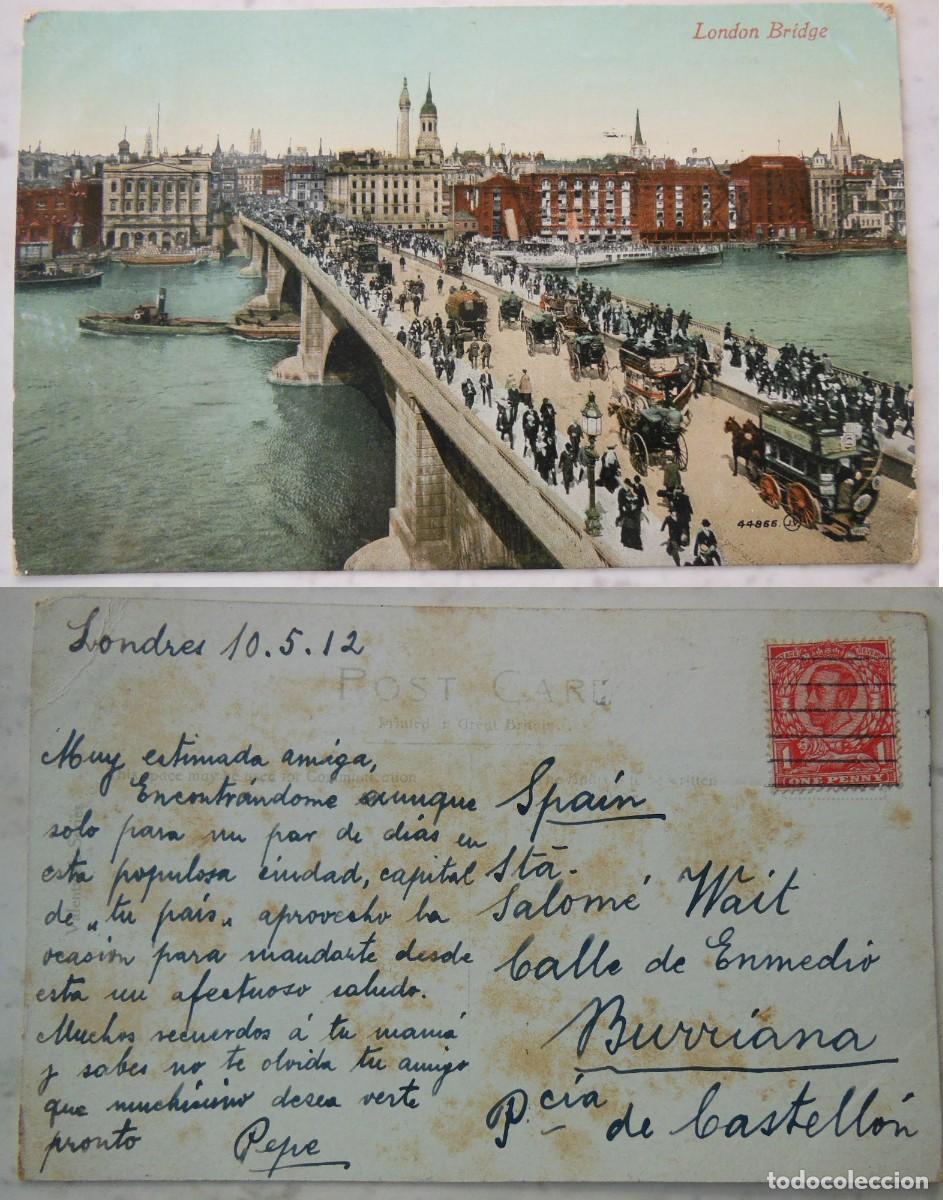 London Bridge
44866. J.V.
Londres 10.5.12
POST CARD
Printed in Great Britain
This space may be used for Communication
written
Valentines Series
ONE PENNY
Muy estimada amiga,
Encontrándome aunque
solo para un par de dias en
esta populosa ciudad, capital
de „tu país„ aprovecho la
ocasión para mandarte desde
esta un afectuoso saludo.
Muchos recuerdos á tu mamá
y sabes no te olvida tu amigo
que muchisimo desea verte
pronto Pepe
Spain
Stā.
Salomé Wait
Calle de Enmedio
Burriana
P.cia de Castellón
todocoleccion